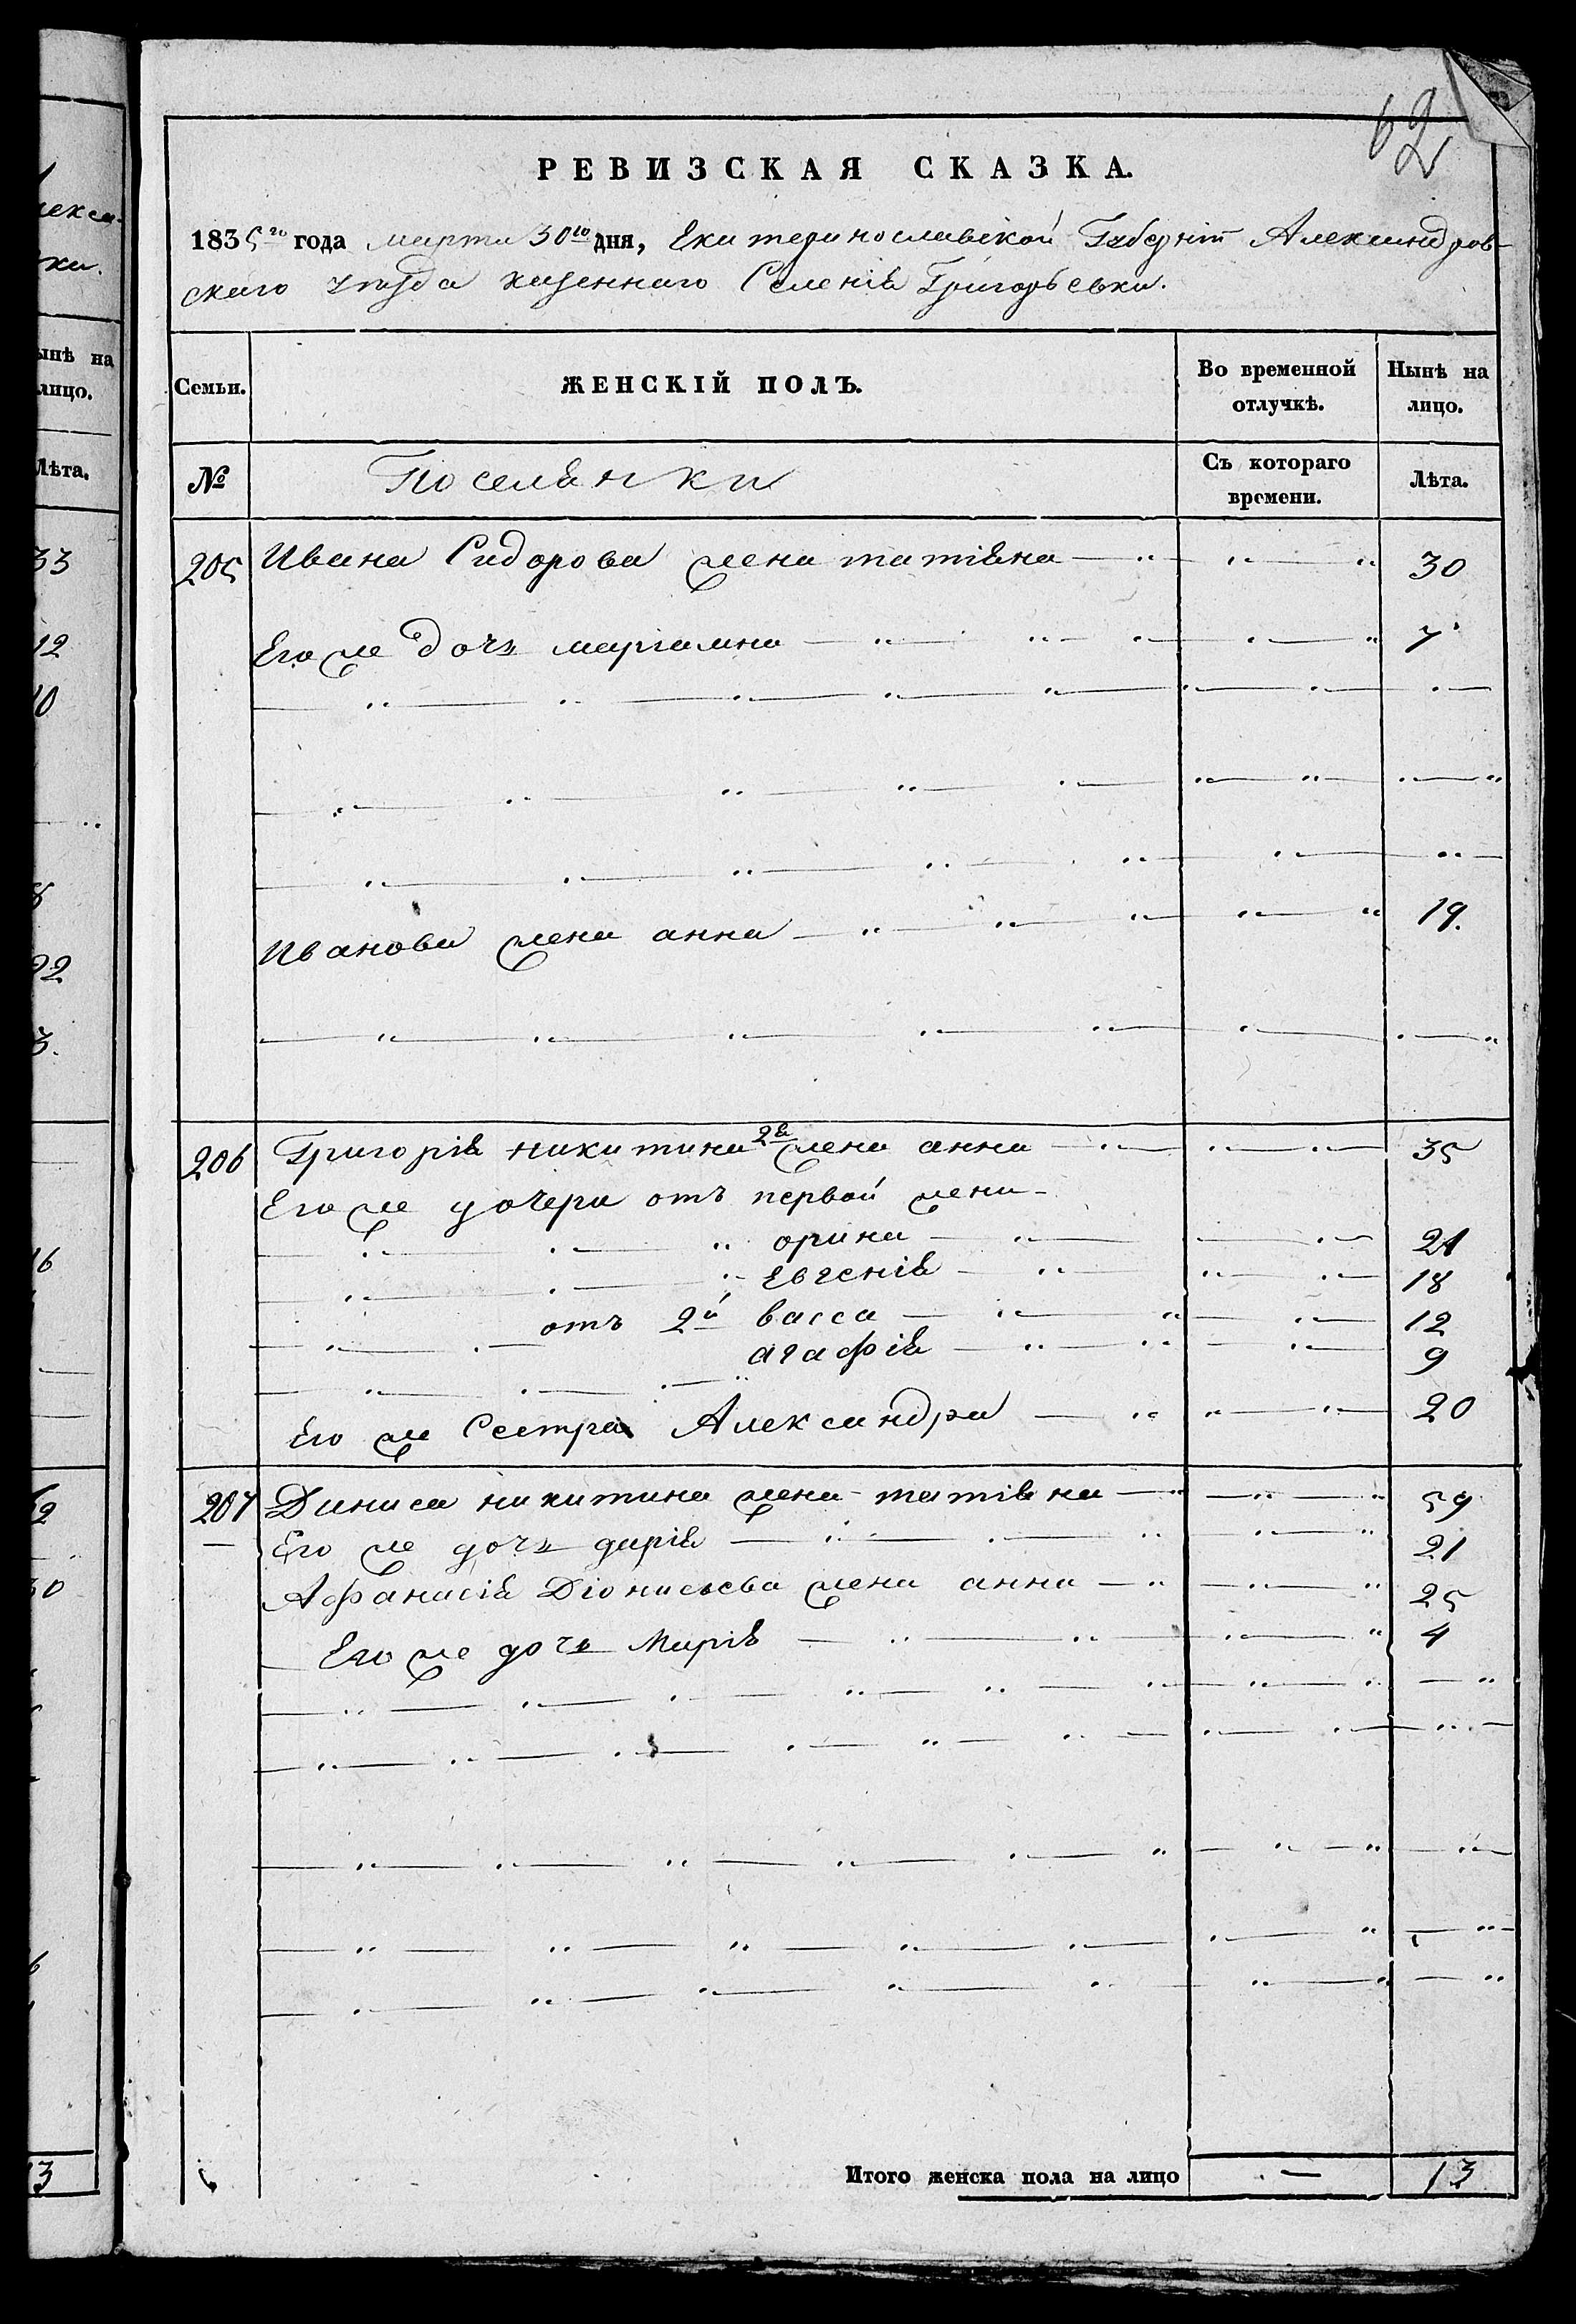 62
РЕВИЗСКАЯ СКАЗКА.
1835го года марта 30го дня, Екатеринославской Губерніи Александров-
скаго уѣзда казеннаго Селенія Григорьевки.
Семьи. ЖЕНСКІЙ ПОЛЪ. Во временной отлучкѣ. Нынѣ на лицо.
№ Поселянки Съ котораго времени. Лѣта.
205 Ивана Сидорова жена татіяна 30
Его же дочь марiамна 7
Иванова жена анна 19.
206 Григорія никитина 2я жена анна 35
Его же дочери отъ первой жени
орина 21
Евгенія 18
отъ 2й васса 12
агафія 9
Его же Сестра Александра 20
207 Диниса никитина жена татіяна 59
Его же дочь дарія 21
Афанасія Діонисьева жена анна 25
Его же дочь Марія 4
Итого женска пола на лицо — 13
екса-
ки.
ынѣ на
лицо.
Лѣта.
33
12
10
22
3.
16
30
13